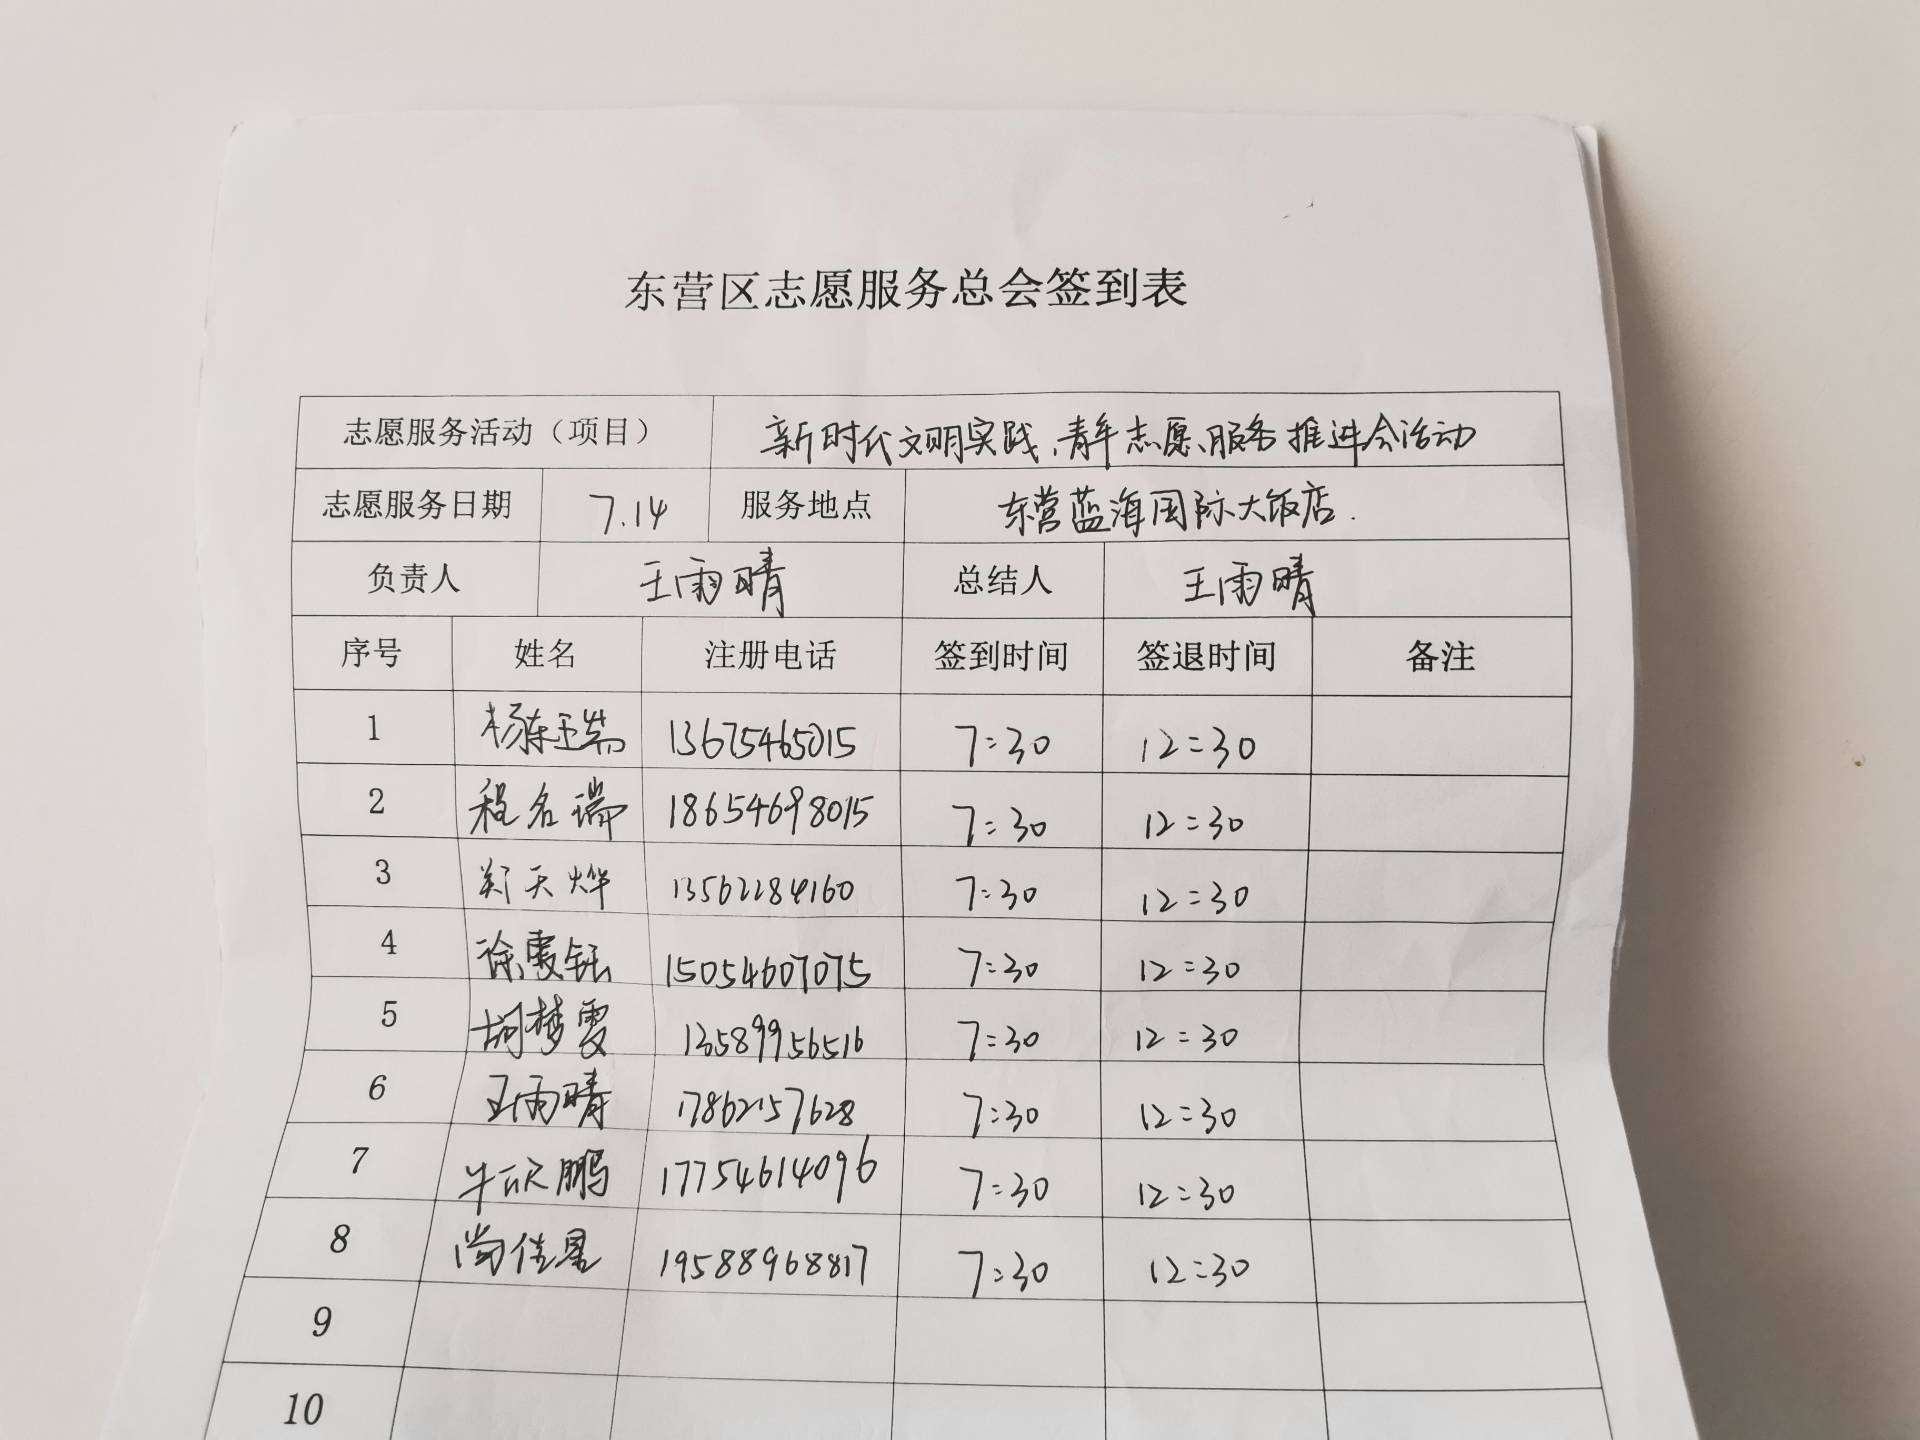 东营区志愿服务总会签到表
志愿服务活动（项目） 新时代文明实践、青年志愿服务推进会活动
志愿服务日期 7.14 服务地点 东营蓝海国际大饭店.
负责人 王雨晴 总结人 王雨晴
序号 姓名 注册电话 签到时间 签退时间 备注
1 13675465015 7:30 12:30
2 程名瑞 18654698015 7:30 12:30
3 郑天烨 13562284160 7:30 12:30
4 徐雯钰 15054607075 7:30 12:30
5 胡梦雯 13589956516 7:30 12:30
6 王雨晴 17862157628 7:30 12:30
7 牛欣鹏 17754614096 7:30 12:30
8 尚佳星 19588968817 7:30 12:30
9
10